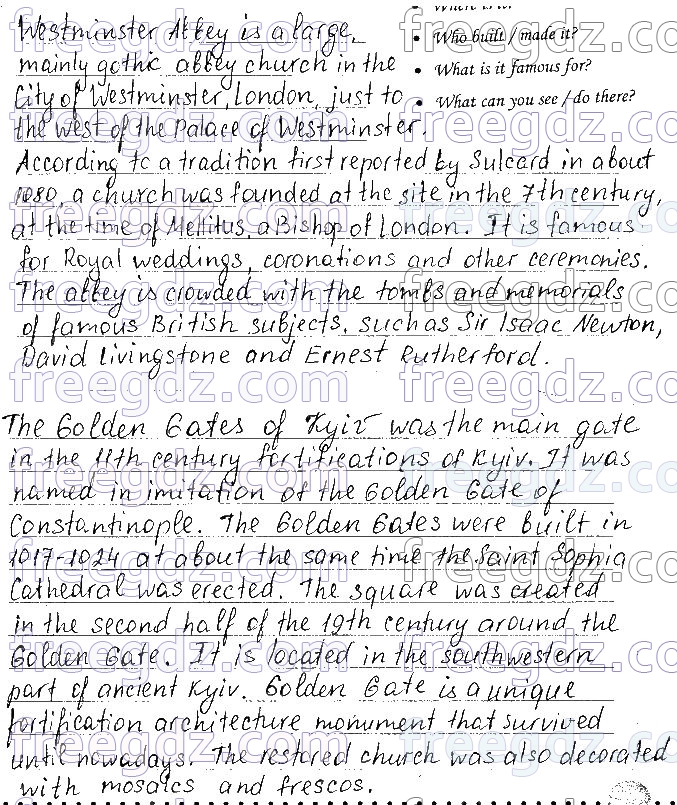 Where is it?
Westminster Abbey is a large,
• Who built / made it?
mainly gothic abbey church in the
• What is it famous for?
City of Westminster, London, just to
• What can you see / do there?
the west of the Palace of Westminster.
According to a tradition first reported by Sulcard in about
1080, a church was founded at the site in the 7th century,
at the time of Mellitus, a Bishop of London. It is famous
for Royal weddings, coronations and other ceremonies.
The abbey is crowded with the tombs and memorials
of famous British subjects, such as Sir Isaac Newton,
David Livingstone and Ernest Rutherford.
The Golden Gates of Kyiv was the main gate
in the 11th century fortifications of Kyiv. It was
named in imitation of the Golden Gate of
Constantinople. The Golden Gates were built in
1017-1024 at about the same time the Saint Sophia
Cathedral was erected. The square was created
in the second half of the 19th century around the
Golden Gate. It is located in the southwestern
part of ancient Kyiv. Golden Gate is a unique
fortification architecture monument that survived
until nowadays. The restored church was also decorated
with mosaics and frescos.
freegdz.com